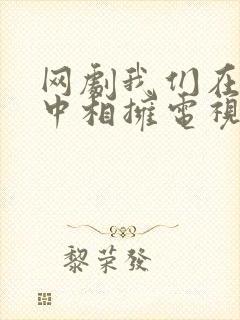 网劇我们在
中相擁電視
黎荣發